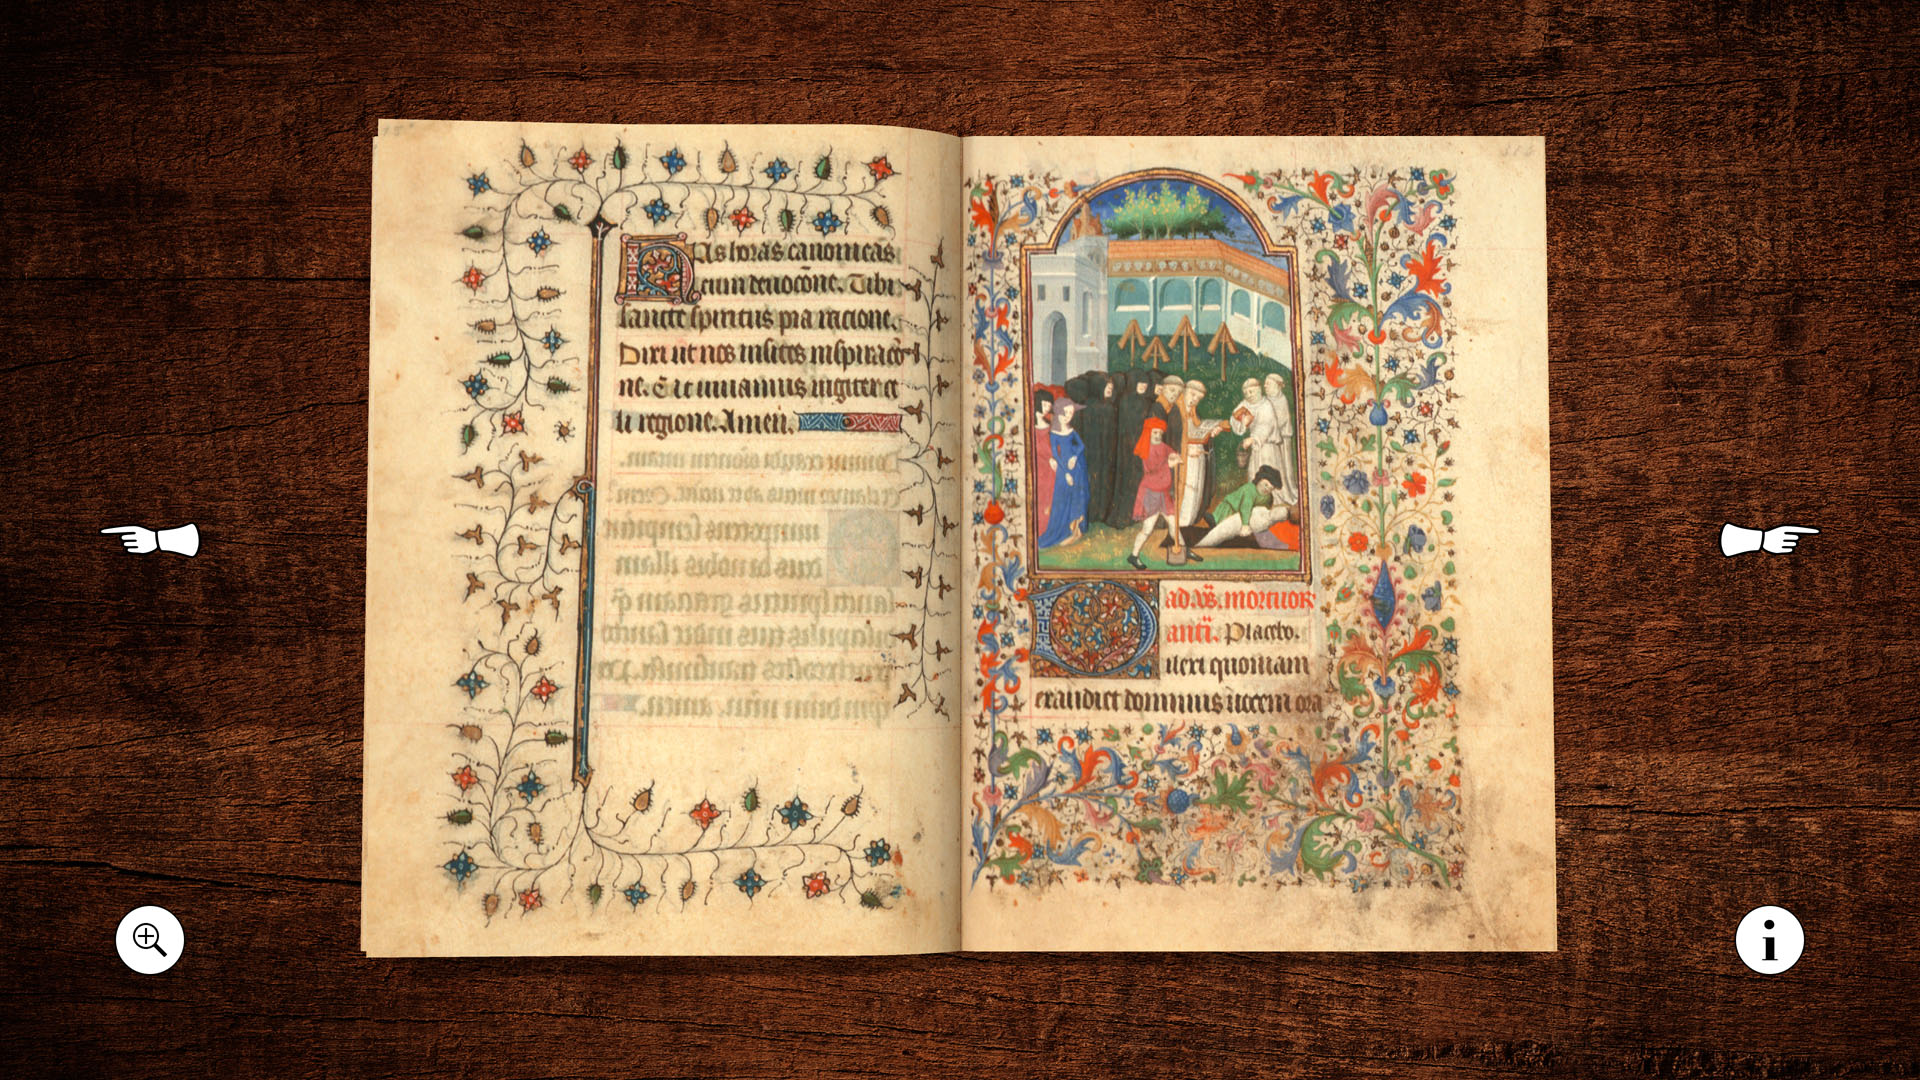 Has horas canonicas
cum deuocōne. Tibi
sancte spiritus pia racione.
Dixi ut nos uisites inspiracō-
ne. Et uiuamus iugiter ce
li regione. Amen.
ad vs̄. mortuor
antī. Placebo.
ilexi quoniam
exaudiet dominus uocem ora
i